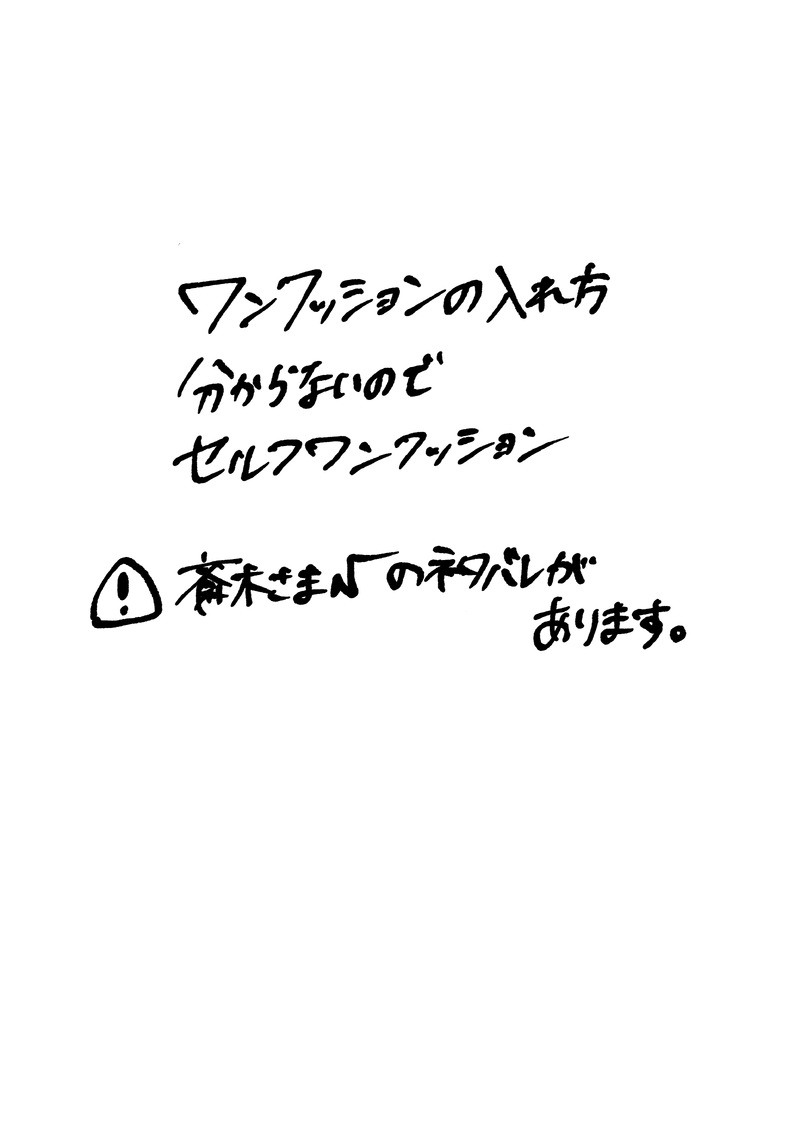 ワンクッションの入れ方
分からないので
セルフワンクッション
⚠斎木さま√のネタバレが
あります。